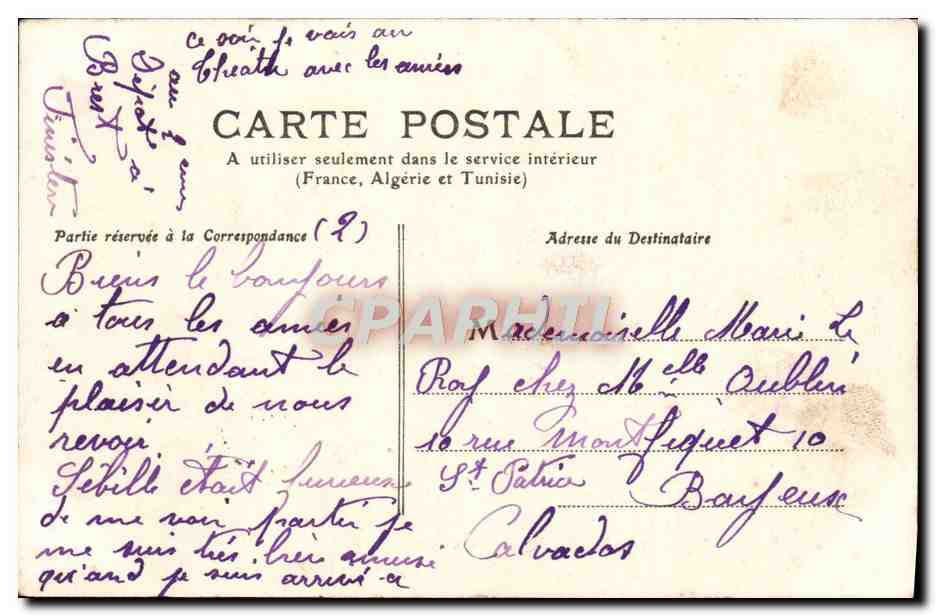 ce soir je vais au
théatre avec les amies
au 2 eme
Dépot à
Brest
Finistere
CARTE POSTALE
A utiliser seulement dans le service intérieur
(France, Algérie et Tunisie)
Partie réservée à la Correspondance (2)
Biens le bonjours
a tous les amies
en attendant le
plaisir de nous
revoir
Sébille était furieuse
de me voir partir je
me suis très bien amusé
qu'and je suis arrivé a
Adresse du Destinataire
CPARHTI
Mademoiselle Marie Le
Roy chez Melle Oublin
10 rue Montfiquet 10
St Patrice Bayeux
Calvados